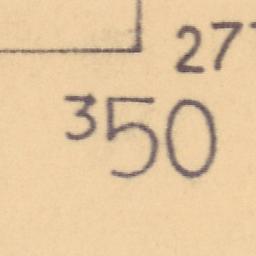 277
350